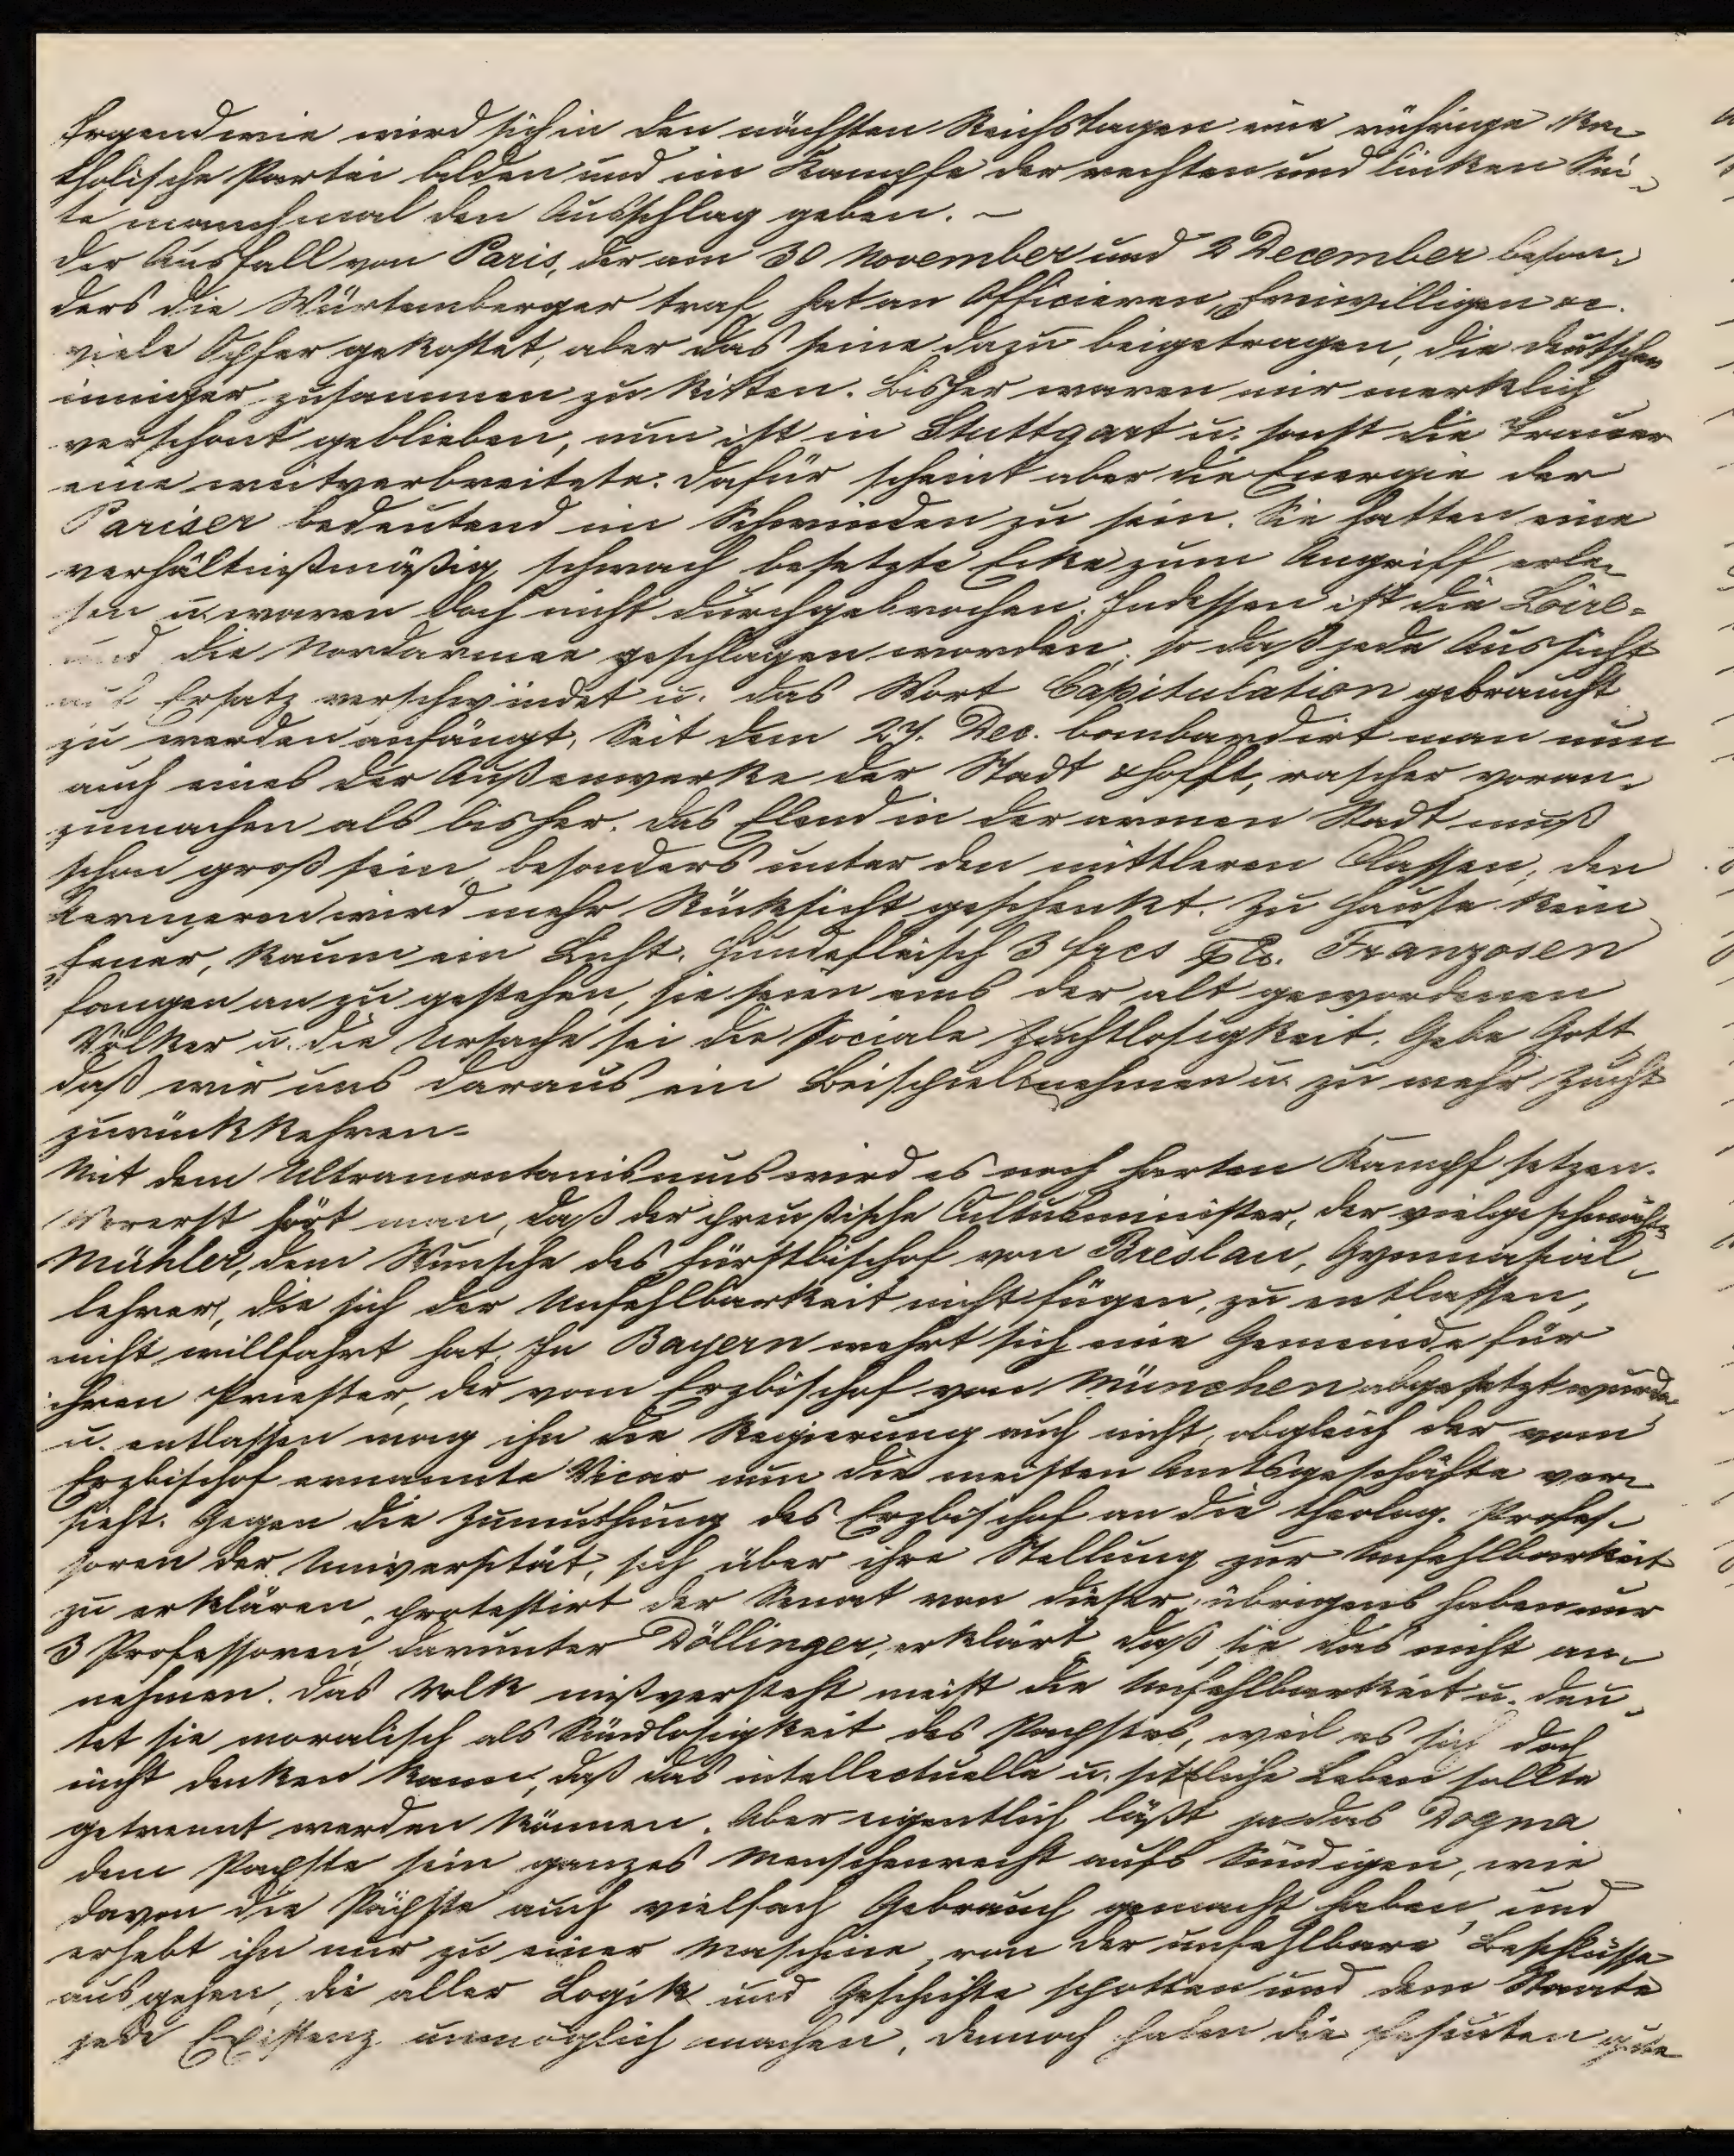 Irgendwie wird sich in den nächsten Reichstagen eine rührige ka-
tholische Partei bilden und im Kampfe der rechten und linken Sei-
te manchmal den Ausschlag geben. -
Der Ausfall von Paris, der am 30 November und 2 December beson-
ders die Würtemberger traf, hat an Officieren, Freiwilligen &c.
viele Opfer gekostet, aber das seine dazu beigetragen, die Deutschen
inniger zusammen zu kitten. Bisher waren wir merklich
verschont geblieben, nun ist in Stuttgart u. sonst die Trauer
eine weitverbreitete. Dafür scheint aber die Energie der
Pariser bedeutend im Schwinden zu sein. Sie hatten eine
verhältnißmäßig schwach besetzte Ecke zum Angriff erle-
sen u. waren doch nicht durchgebrochen. Indessen ist die Loire-
und die Nordarmee geschlagen worden, so daß jede Aussicht
auf Ersatz verschwindet u. das Wort Capitulation gebraucht
zu werden anfängt. Seit dem 27. Dec. bombardirt man nun
auch eines der Außenwerke der Stadt & hofft, rascher voran-
zumachen als bisher. Das Elend in der armen Stadt muß
schon groß sein, besonders unter den mittleren Classen; den
Aermeren wird mehr Rücksicht geschenkt. Zu Hause kein
Feuer, kaum ein Licht. Hundefleisch 3 frcs Franzosen
fangen an zu gestehen, sie seien eins der alt gewordenen
Völker u. die Ursache sei die sociale Zuchtlosigkeit. Gebe Gott
daß wir uns daraus ein Beispiel nehmen u. zu mehr Zucht
zurückkehren-
Mit dem Ultramontanismus wird es noch harten Kampf setzen.
Vorerst hört man, daß der preußische Cultusminister, der vielgeschmähte
Mühler, dem Wunsche des Fürstbischof von Breslau, Gymnasial-
lehrer, die sich der Unfehlbarkeit nicht fügen, zu entlassen,
nicht willfahrt hat. In Bayern wehrt sich eine Gemeinde für
ihren Priester, der vom Erzbischof von München abgesetzt wurde
u. entlassen mag ihn die Regierung auch nicht, obgleich der vom
Erzbischof ernannte Vicar nun die meisten Amtsgeschäfte ver-
sieht. Gegen die Zumuthung des Erzbischof an die theolog. Profes-
soren der Universität, sich über ihre Stellung zur Unfehlbarkeit
zu erklären, protestirt der Senat von dieser; übrigens haben nur
3 Professoren, darunter Döllinger, erklärt, daß sie das nicht an-
nehmen. Das Volk mißversteht meist die Unfehlbarkeit u. deu-
tet sie moralisch als Sündlosigkeit des Papstes, weil es sich doch
nicht denken kann, daß das intellectuelle u. sittliche Leben sollte
getrennt werden können. Aber eigentlich läßt ja das Dogma
dem Papste sein ganzes Menschenrecht aufs Sündigen, wie
davon die Päpste auch vielfach Gebrauch gemacht haben, und
erhebt ihn nur zu einer Maschine, von der unfehlbare Beschlüsse
ausgehen, die aller Logik und Geschichte spotten und dem Staate
jede Existenz unmöglich machen. Dennoch haben die Jesuiten gute